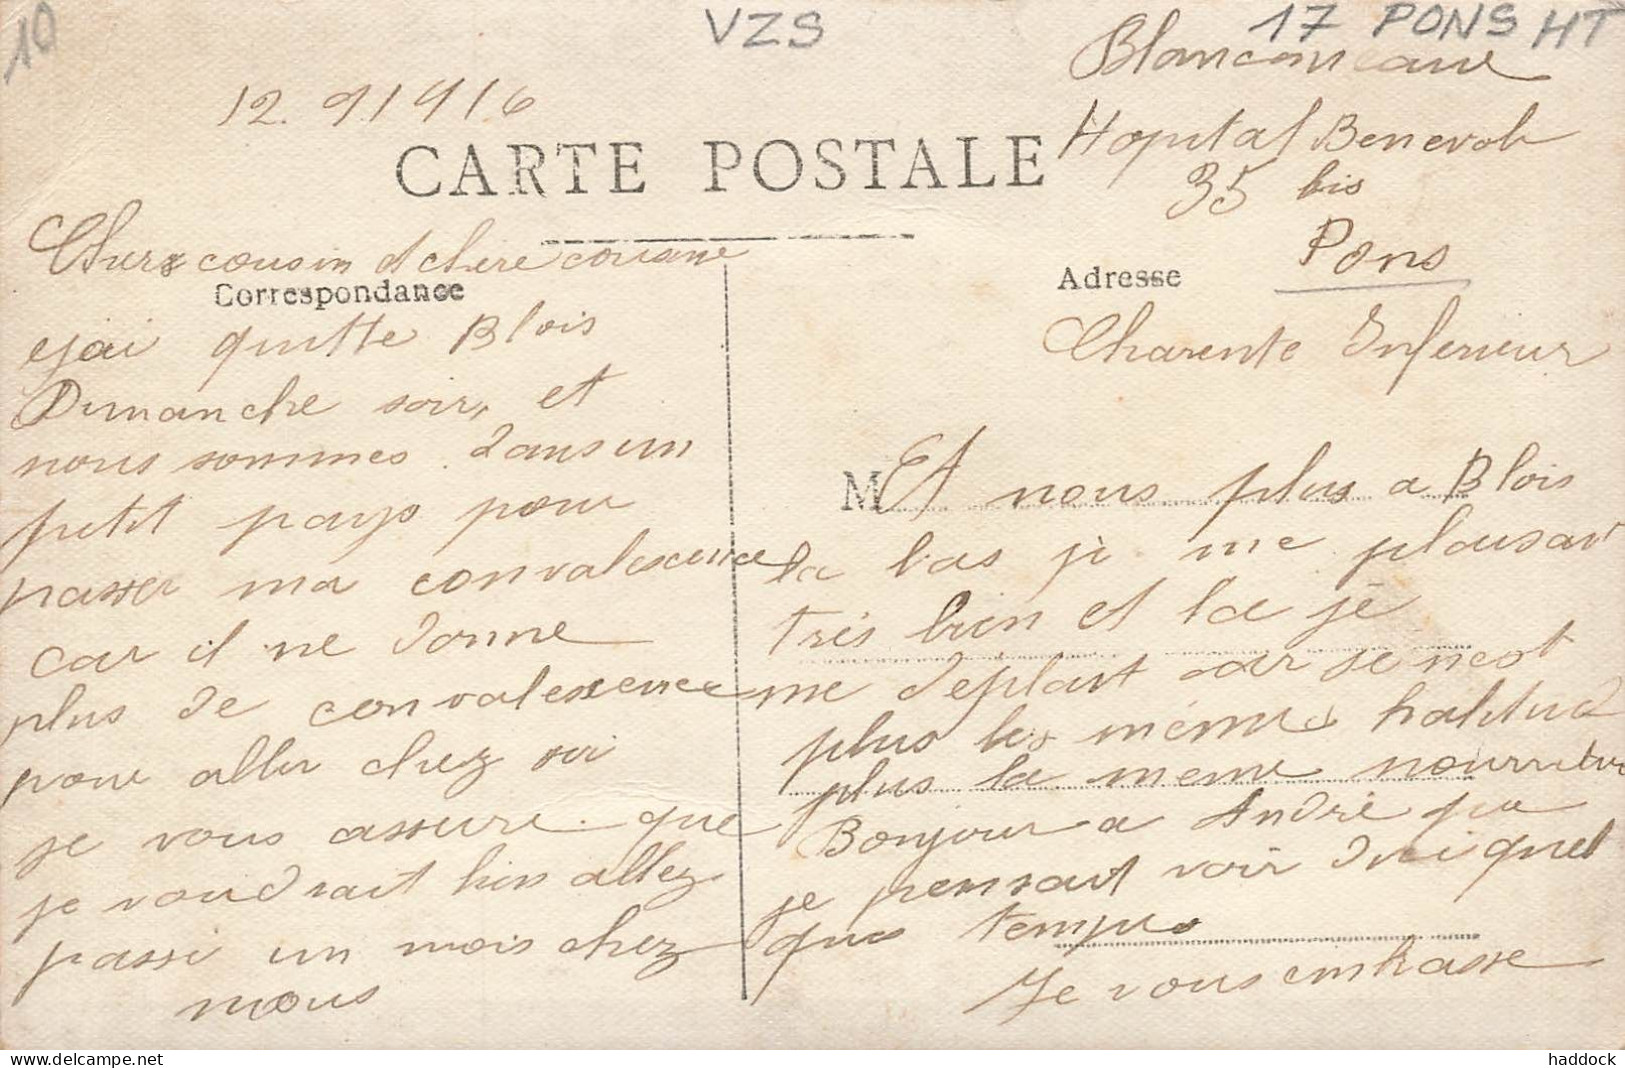 10
VZS
17 PONS HT
12. 9/1916
Hopital Benevole
35 bis
Pons
CARTE POSTALE
Chers cousin et chere cousine
Correspondance
ejai quitte Blois
Dimanche soir, et
nous sommes dans un
petit pays pour
passer ma convalescence
car il ne donne
plus de convalessence
pour aller chez soi
je vous assure que
je voudrait bien allez
passé un mois chez
nous
Adresse
Charente Inferieur
M
Et nous plus a Blois
la bas je me plaisait
trés bien et la je
me déplait car se nest
plus les mémes habitud
plus la meme nourritur
Bonjour a André que
je pensait voir dici quel
que temps
Je vous embrasse
haddock